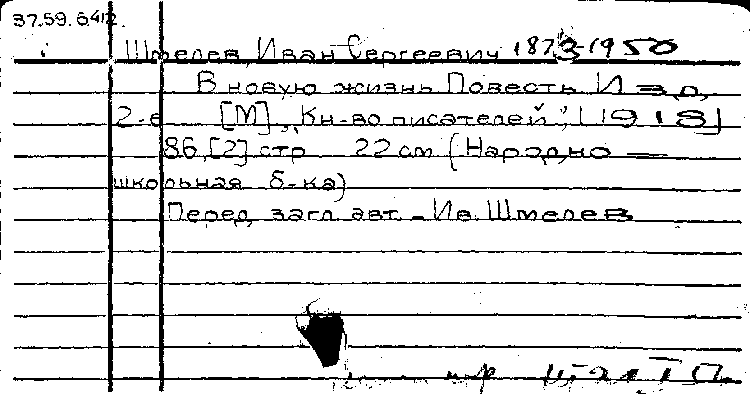 37.59.6412.
Шмелев, Иван Сергеевич 1873-1950
В новую жизнь Повесть Изд.
2-е [М], "Кн-во писателей", [1918]
86,[2] стр 22 см (Народно —
школьная б-ка)
Перед загл. авт. - Ив. Шмелев